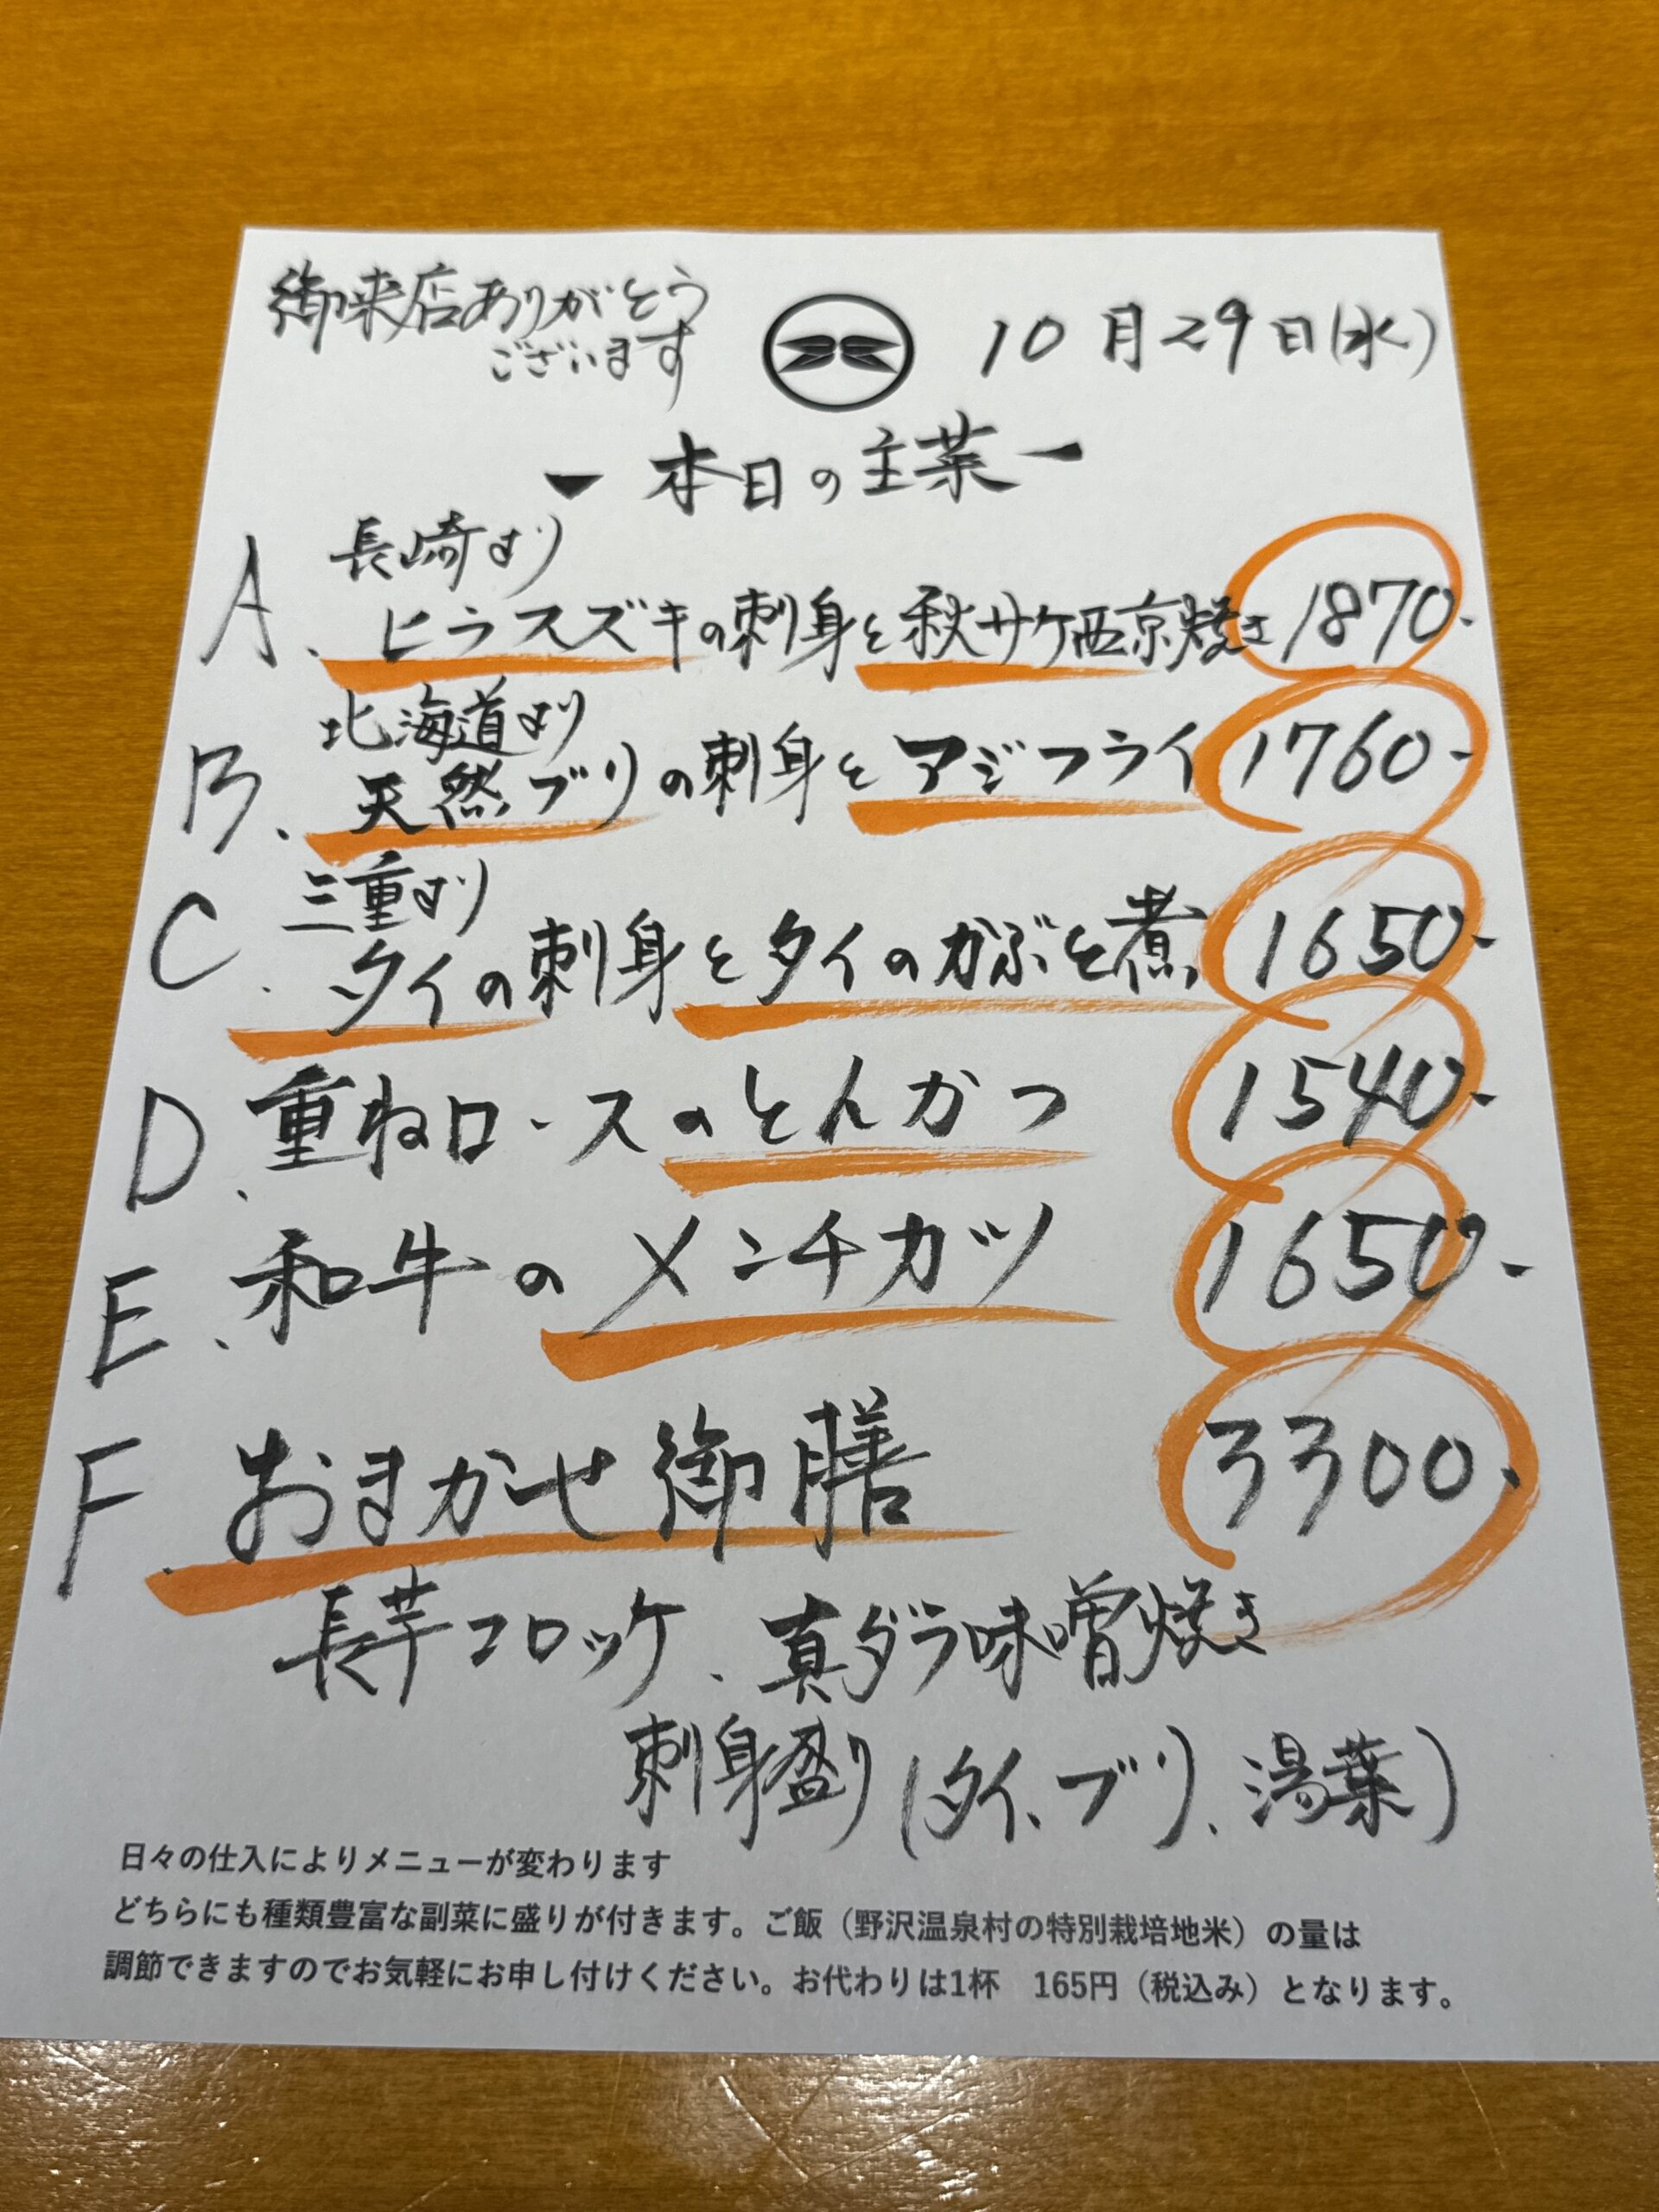 御来店ありがとう
ございます
10月29日(水)
ー本日の主菜ー
長崎より
A、ヒラスズキの刺身と秋サケ西京焼き 1870-
北海道より
B、天然ブリの刺身とアジフライ 1760-
三重より
C、タイの刺身とタイのかぶと煮 1650-
D、重ねロースのとんかつ 1540-
E、和牛のメンチカツ 1650-
F、おまかせ御膳 3300-
長芋コロッケ、真ダラ味噌焼き
刺身盛り(タイ、ブリ、湯葉)
日々の仕入によりメニューが変わります
どちらにも種類豊富な副菜に盛りが付きます。ご飯(野沢温泉村の特別栽培地米)の量は
調節できますのでお気軽にお申し付けください。お代わりは1杯　165円(税込み)となります。